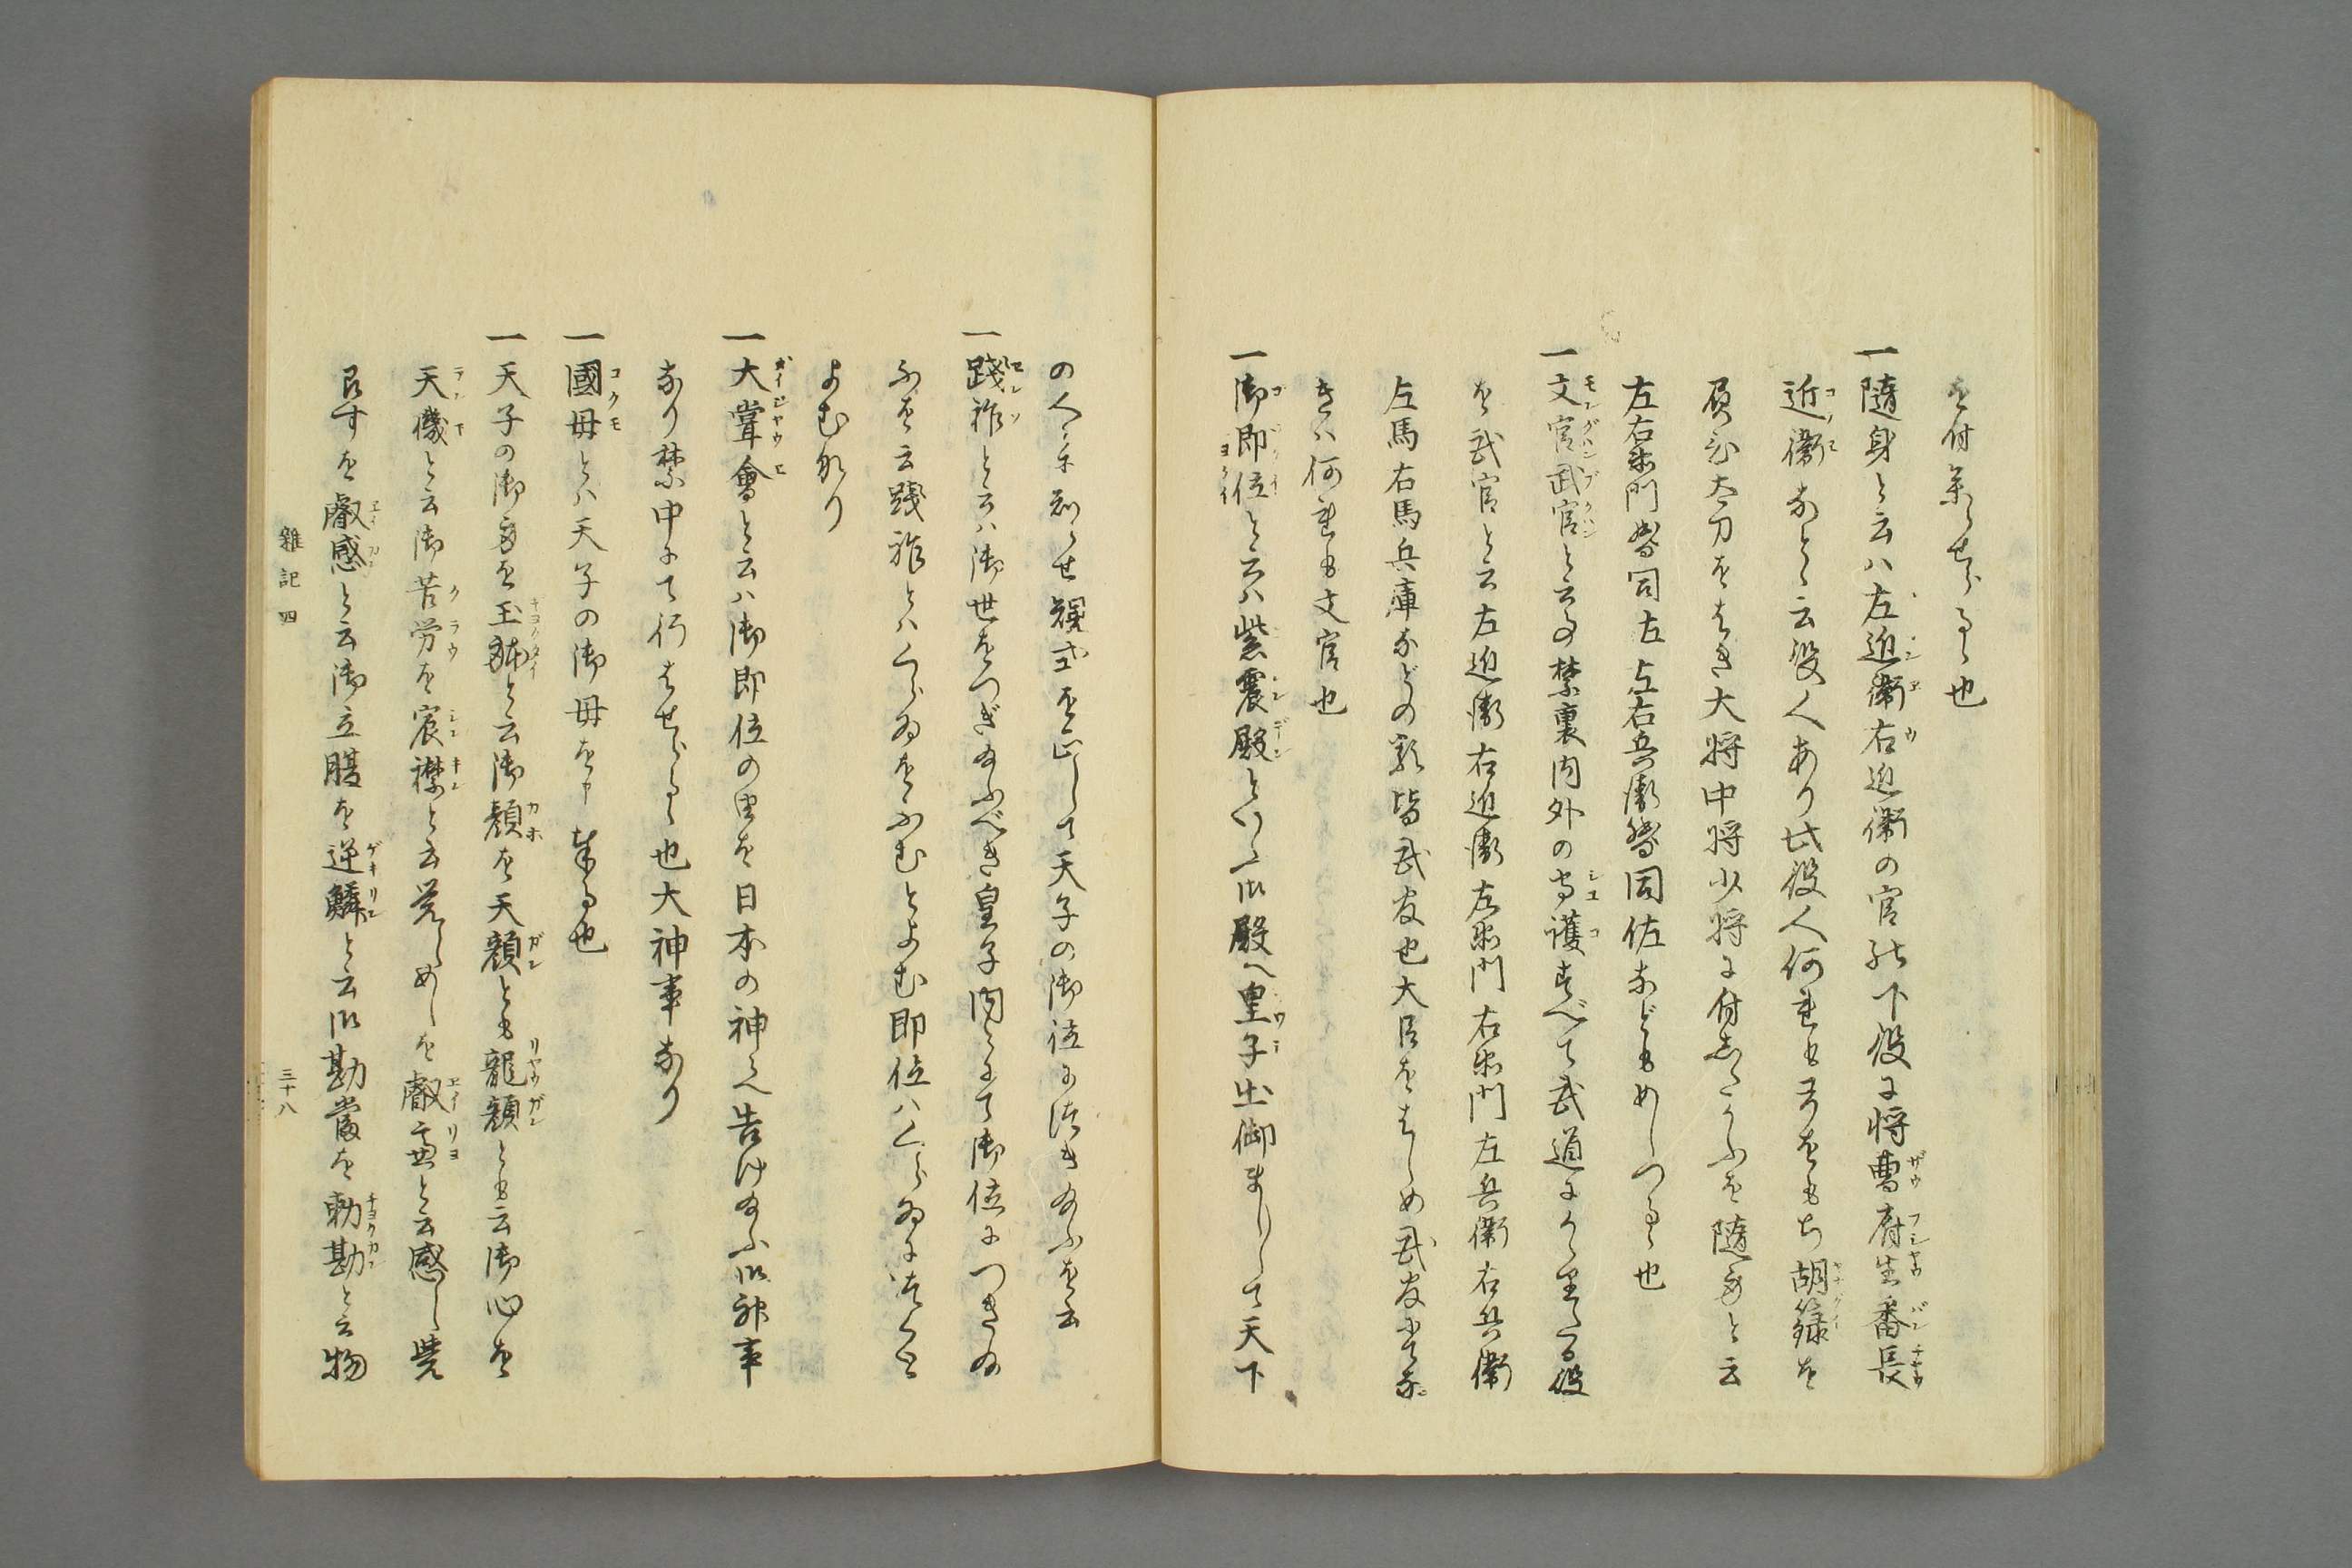 を付らるゝ也
一隨身と云ハ左近衛右近衛の官の下役に将曹府生番長
近衛なとゝ云役人あり此役人何れも弓をもち胡籙を
負ひ太刀をはき大将中将少将に付したかふを随身と云
左右衛門督同佐左右兵衛督同佐なども めしつるゝ也
一文官武官と云事禁裏内外の守護すべて武道にかゝりたる役
を武官と云左近衛右近衛左衛門右衛門左兵衛右兵衛
左馬右馬兵庫などの類皆武官也大臣をはしめ武官にてな
きハ何れも文官也
一御即位と云ハ紫震殿といふ御殿へ皇子出御ましまして天下
の人に知らせ規式を正して天子の御位に付き給ふを云
一踐祚と云ハ御世をつぎ給ふべき皇子内々にて御位につき給
ふを云踐祚とハくらゐをふむとよむ即位ハくらゐにつくと
よむなり
一大嘗會と云ハ御即位の由を日本の神々へ告け給ふ御神事
なり禁中にて行ハせらるゝ也大神事なり
一國母とハ天子の御母を申奉る也
一天子の御身を玉躰と云御顔を天顔とも龍顔とも云御心を
天機と云御苦労を宸襟と云覚しめしを叡慮と云感し覚
召すを叡感と云御立腹を逆鱗と云御勘當を勅勘と云物
雜記四
三十八